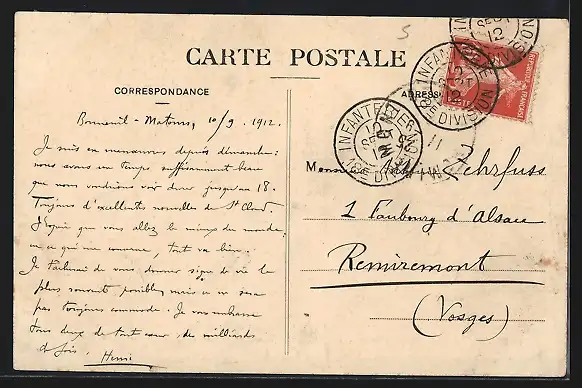 CARTE POSTALE
CORRESPONDANCE
ADRESSE
Bonneuil-Matours, 10/9. 1912.
Je suis en manœuvres depuis dimanche:
nous avons un temps suffisamment beau
que nous voudrions voir durer jusqu'au 18.
Toujours d'excellentes nouvelles de St Cloud.
J'espère que vous allez le mieux du monde,
en ce qui me concerne, tout va bien.
Je tâcherai de vous donner signe de vie le
plus souvent possible, mais ce ne sera
pas toujours commode. Je vous embrasse
tous deux de tout cœur, des milliards
de fois.
Henri
Monsieur Zehrfuss
1 Faubourg d'Alsace
Remiremont
(Vosges)
INFANTERIE
18E DIVISION
5
11